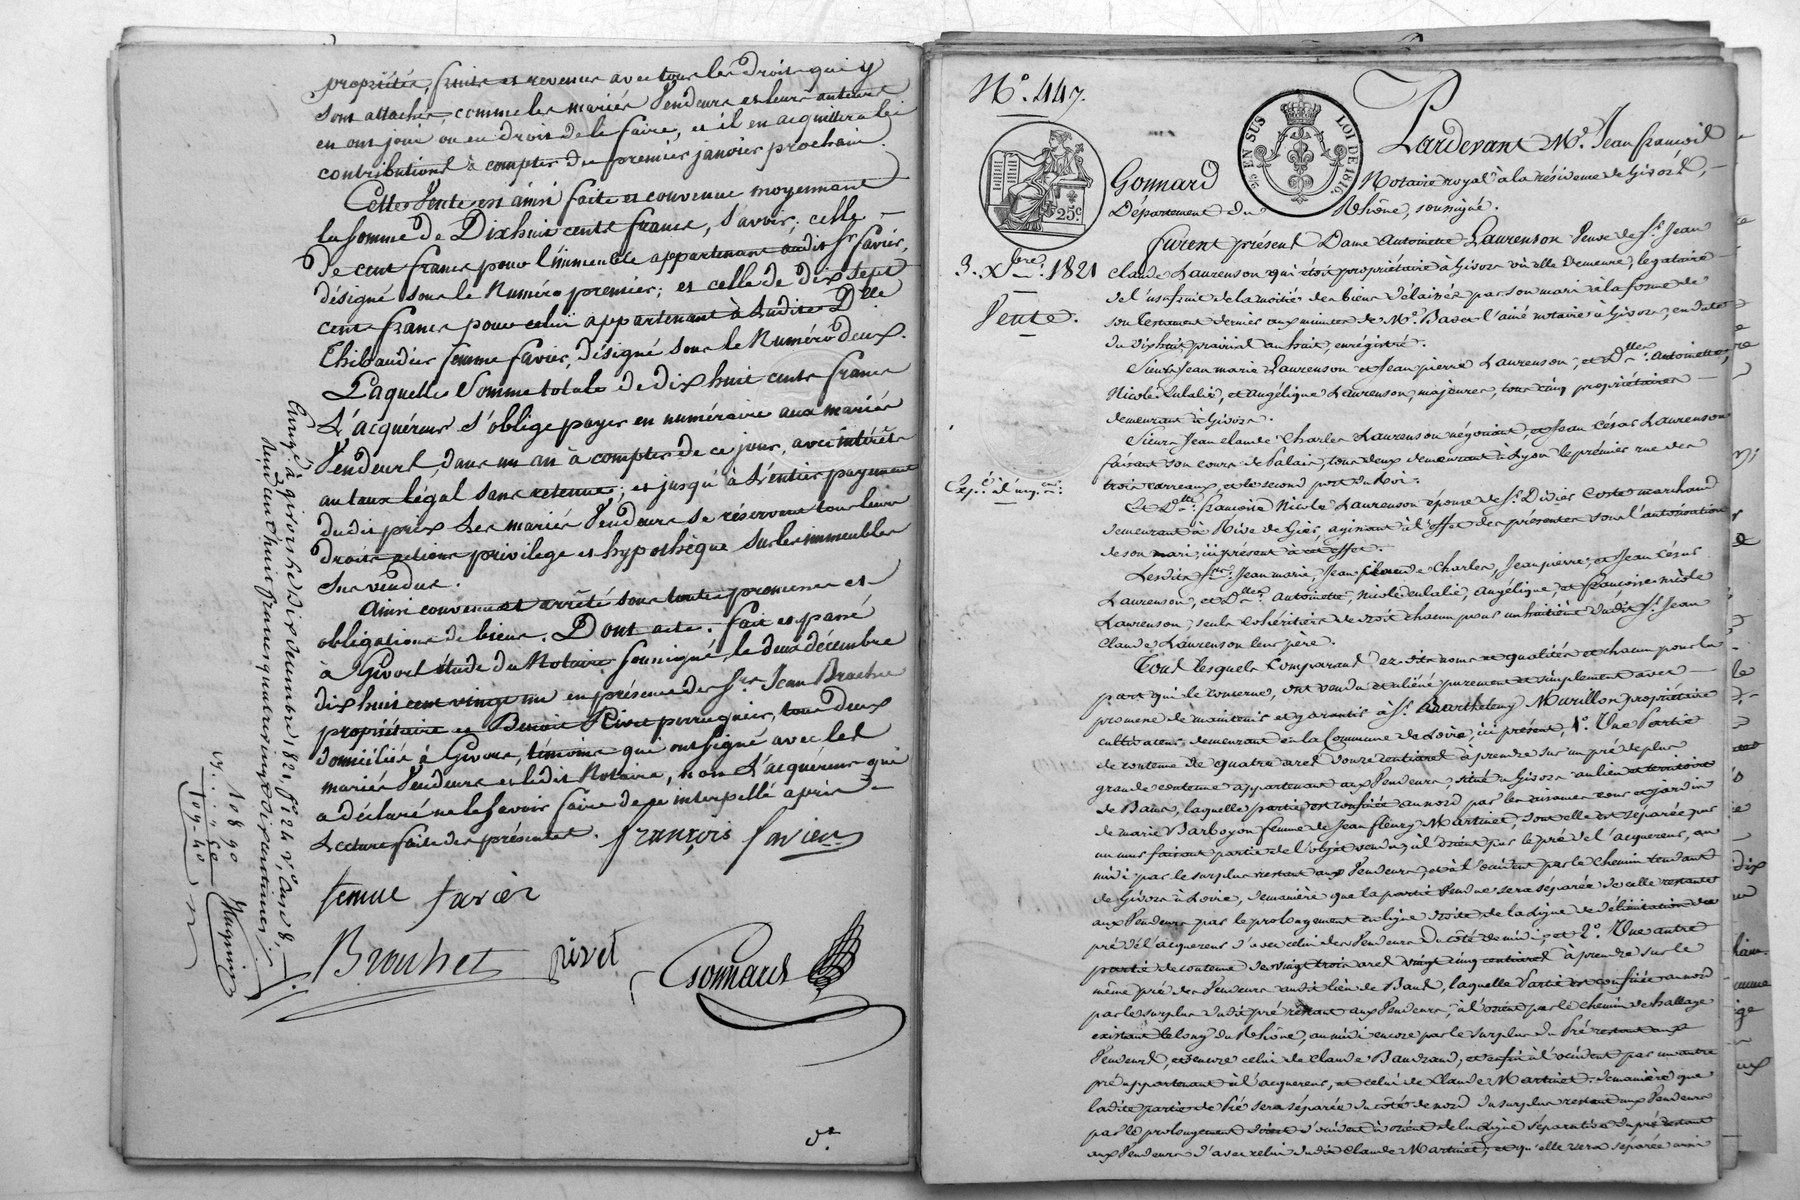 propriétés, fruits et revenus avec tous les droits qui y
sont attachés, comme les mariés Vendeurs et leurs auteurs
en ont joui ou eu droit de le faire, et il en acquittera les
contributions à compter du premier janvier prochain.
Cette Vente est ainsi faite et convenue moyennant
la somme de Dix huit cents francs, savoir; celle
de cent francs pour l'immeuble appartenant audit Sr. Favier,
désigné sous le Numéro premier; et celle de dix sept
cent francs pour celui appartenant à ladite Dlle
Thibaudier femme Favier, désigné sous le Numéro deux.
Laquelle Somme totale de dix huit cents francs
L'acquéreur s'oblige payer en numéraire aux mariés
Vendeurs, dans un an à compter de ce jour, avec intérêts
au taux légal sans retenue; et jusqu'à l'entier payement
dudit prix Les mariés Vendeurs se réservent tous leurs
droits actions privilège et hypothèque sur les immeubles
sus vendus.
Ainsi convenu et arrêté sous toutes promesses et
obligations de biens. Dont acte. fait et passé
à Givors étude du Notaire soussigné, le deux décembre
dix huit cent vingt un en présence des Srs. Jean Brachet
propriétaire et Benoit Rivet perruquier, tous deux
domiciliés à Givors, témoins qui ont signé avec les
mariés Vendeurs et ledit Notaire, non L'acquéreur qui
a déclaré ne le savoir faire de ce interpellé après
Lecture faite des présentes. françois favier
femme favier
Brouhet rivet Gonnard
Enregé à givors le dix décembre 1821, fo 124 vo, Case 8,
reçu cent huit francs quatre vingt dix centimes
108 90
109-40
Huguenin
N°. 447.
EN SUS LOI DE 1816.
25c
Pardevant Me. Jean françois
Gonnard Notaire royal à la résidence de Givors,
Département du Rhône, soussigné.
3. Xbre. 1821
Vente.
furent présents Dame Antoinette Laurenson Veuve de Sr. Jean
claude Laurenson qui étoit propriétaire à Givors où elle Demeure, légataire
de l'usufruit de la moitié des biens délaissés par son mari à la forme de
son testament dernier aux minutes de Me. Bader l'ainé notaire à Givors, en date
du dix huit prairial an huit, enrégistré.
Sieurs Jean marie Laurenson et Jean pierre Laurenson; et Dlles. Antoinette,
Nicole Eulalie, et angélique Laurenson, majeures, tous cinq propriétaires
demeurant à Givors.
Sieurs Jean claude Charles Laurenson négociant, et Jean César Laurenson
faisant son cours de Palais, tous deux demeurant à Lyon le premier rue des
trois carreaux, et le second port du Roi.
Et Dlle. françoise Nicole Laurenson épouse de Sr. Didier Coste marchand
demeurant à Rive de Gier, agissant à l'effet des présentes sous l'autorisation
de son mari, ici présent à cet effet.
Lesdits Srs. Jean marie, Jean Claude Charles, Jean pierre, et Jean César
Laurenson, et Dlles. Antoinette, Nicole Eulalie, Angélique, et françoise nicole
Laurenson, seuls Cohéritiers de droit chacun pour un huitième dudit Sr. Jean
Claude Laurenson leur père.
Tous Lesquels Comparans ez dits noms et qualités et chacun pour la
part qui le concerne, ont vendu et aliéné purement et simplement avec
promesse de maintenir et garantir à Sr. Barthelemy Murillon propriétaire
cultivateur demeurant en la Commune de Loire, ici présent, 1°. Une Partie
de contenue de quatre ares douze centiares à prendre sur un pré de plus
grande contenue appartenant aux Vendeurs, situé à Givors au lieu et territoire
de Bans, laquelle partie est confinée au nord par les aisances cour et jardin
de marie Barboyon femme de Jean fleury Martinet, dont elle est séparée par
un mur faisant partie de l'objet vendu, à l'orient par le pré de l'acquereur, au
midi par le surplus restant aux Vendeurs, et à l'occident par le chemin tendant
de Givors à Loire, demanière que la partie Vendue sera séparée de celle restante
aux Vendeurs par le prolongement en ligne droite de la Ligne de délimitation du
pré de l'acquereur d'avec celui des Vendeurs Du côté de midi; et 2°. Une autre
partie de contenue de vingt trois ares vingt cinq centiares à prendre sur le
même pré des Vendeurs audit lieu de Bans, laquelle Partie est confinée au nord
par le surplus dudit pré restant aux Vendeurs, à l'orient par le chemin de hallage
existant le long du Rhône, au midi encore par le surplus du Pré restant aux
Vendeurs, et encore celui de claude Baudrand, et enfin à l'occident par un autre
pré appartenant à l'acquereur, et celui de claude Martinet. demanière que
ladite partie de Pré sera séparée du côté de nord du surplus restant aux Vendeurs
par le prolongement droit d'occident à orient de la Ligne séparative du pré restant
aux Vendeurs d'avec celui dudit Claude Martinet; et qu'elle sera séparée aussi